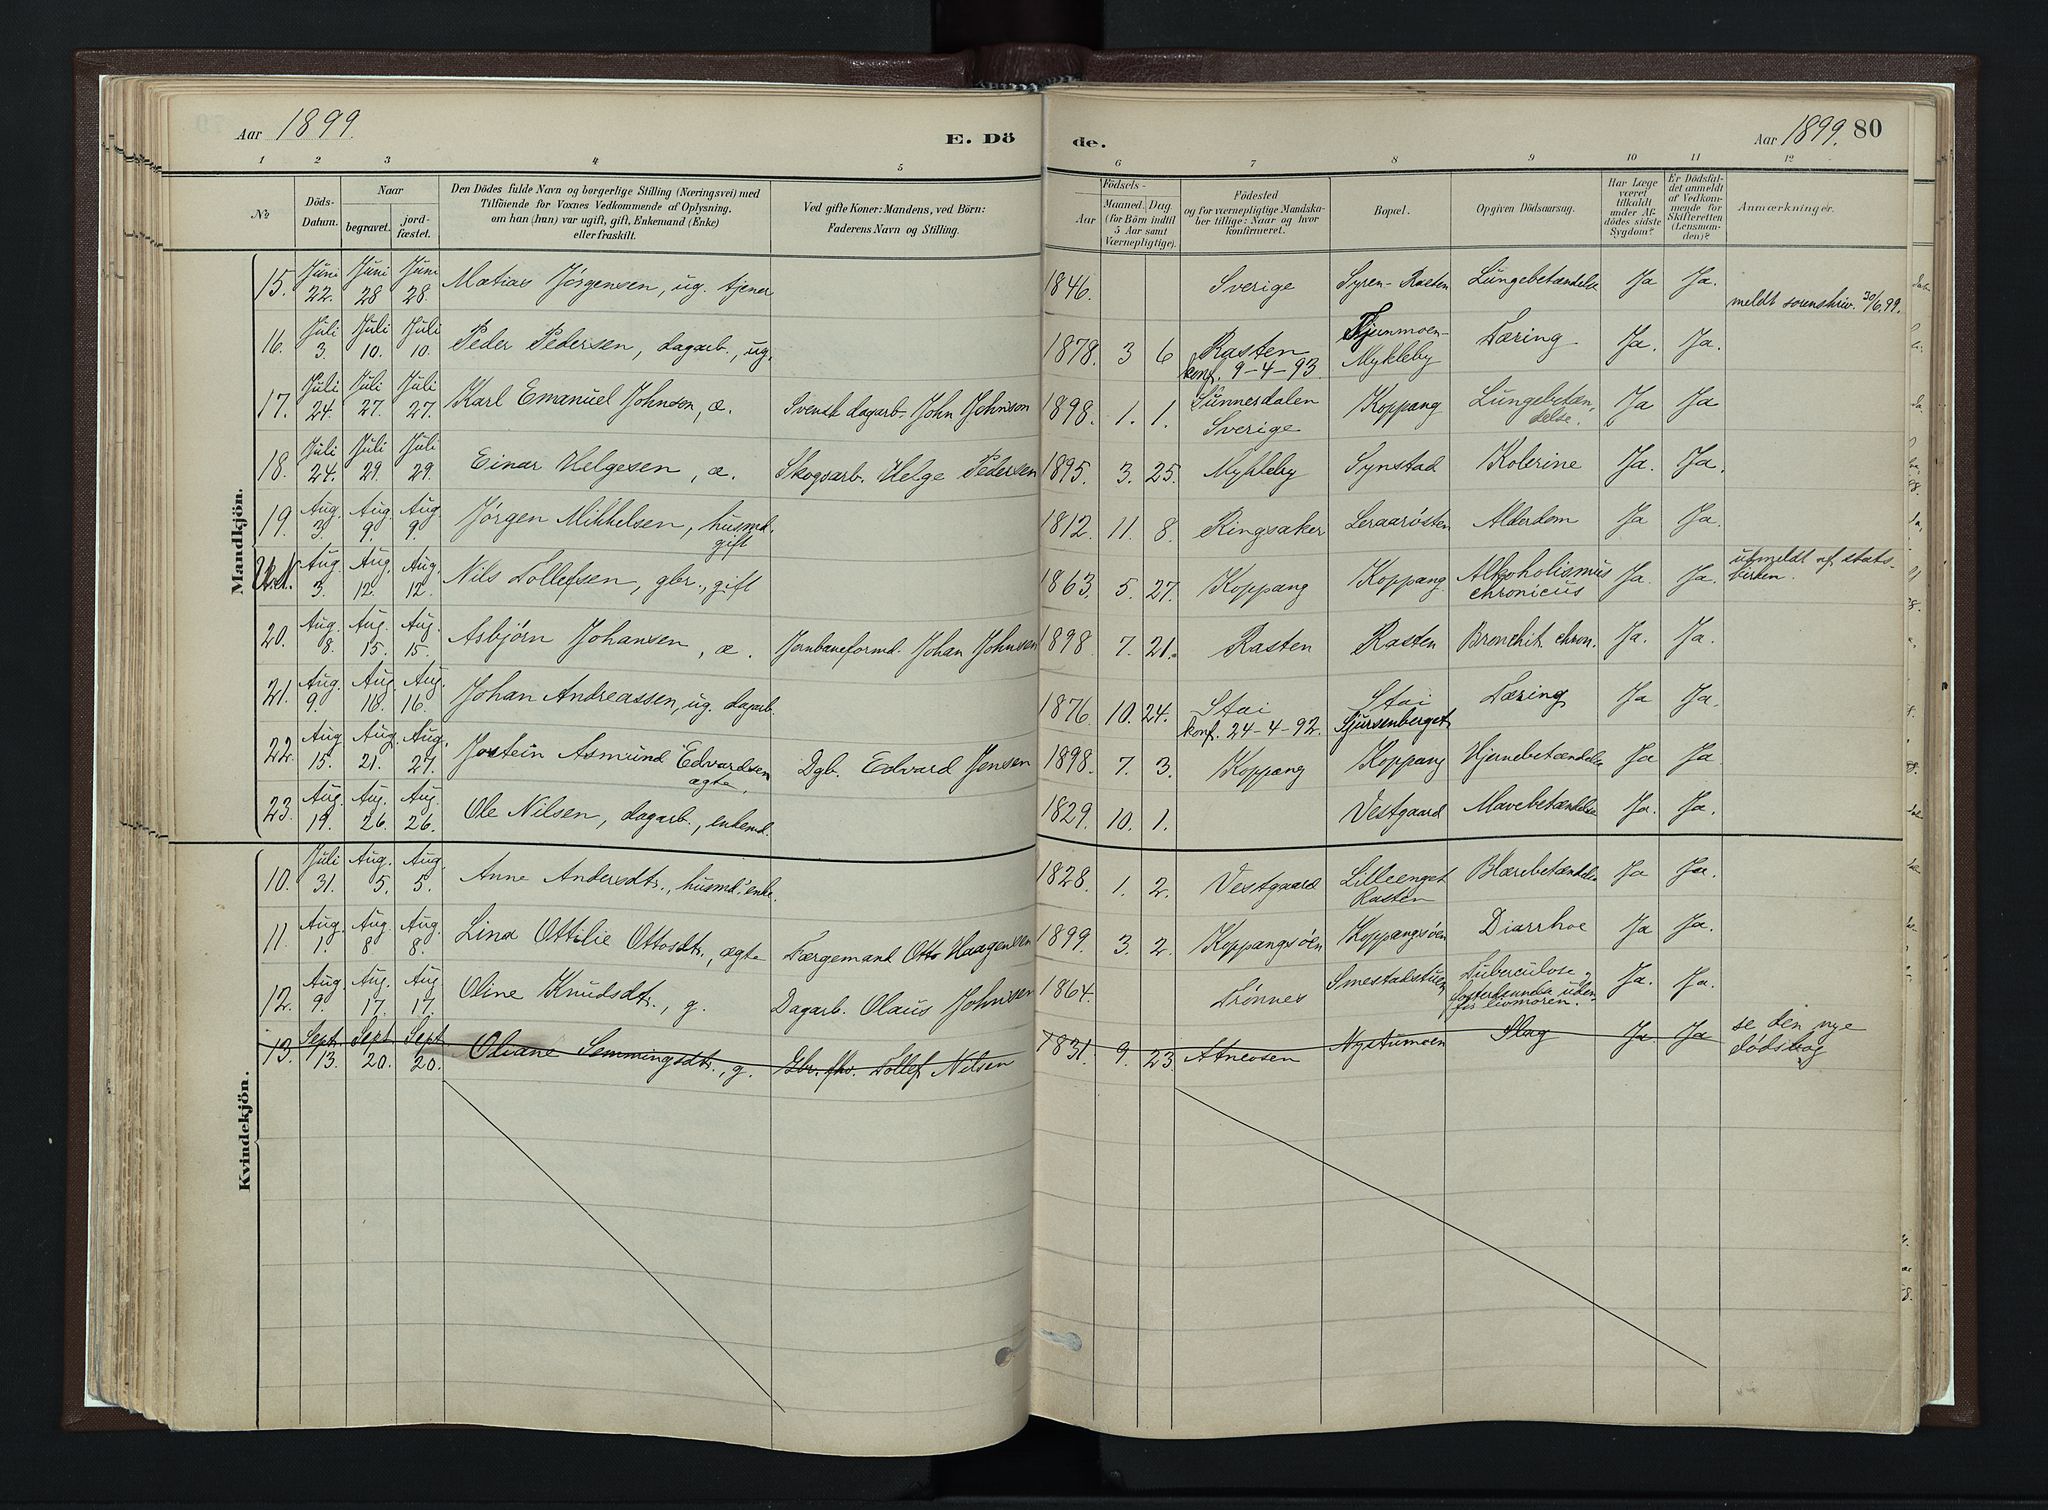 Aar 1899.
E. Dö
de.
Aar 1899. 80
1 2 3 4 5 6 7 8 9 10 11 12
№
Döds-Datum.
Naar
begravet.
jord-fæstet.
Den Dödes fulde Navn og borgerlige Stilling (Næringsvei) med
Tilföiende for Voxnes Vedkommende af Oplysning,
om han (hun) var ugift, gift, Enkemand (Enke)
eller fraskilt.
Ved gifte Koner: Mandens, ved Börn:
Faderens Navn og Stilling.
Födsels-
Aar
Maaned. Dag.
(for Börn indtil
5 Aar samt
Værnepligtige).
Födested
og for værnepligtige Mandska-
ber tillige: Naar og hvor
konfirmeret.
Bopæl.
Opgiven Dödsaarsag.
Har Læge
været
tilkaldt
under Af-
dödes sidste
Sygdom?
Er Dödsfal-
det anmeldt
af Vedkom-
mende for
Skifteretten
(Lensman-
den)?
Anmærkninger.
Mandkjön.
15. Juni 22. Juni 28 Juni 28. Matias Jørgensen, ug. tjener 1846. Sverige Syren-Rasten Lungebetændelse Ja Ja. meldt sorenskriv. 30/6.99.
16. Juli 3. Juli 10. Juli 10. Peder Pedersen, dagarb., ug. 1878. 3 6 Rasten konf. 9-4-93. Tjernmoen-Mykleby Tæring Ja. Ja.
17. Juli 24. Juli 27. Juli 27. Karl Emanuel Johnson, æ. Svensk dagarb. John Johnson 1898. 1. 1. Gunnesdalen Sverige Koppang Lungebetændelse. Ja Ja
18. Juli 24. Juli 29. Juli 29. Einar Helgesen, æ. Skogsarb. Helge Pedersen 1895. 3. 25. Mykleby Synstad Kolerine Ja. Ja.
19. Aug. 3. Aug. 9. Aug. 9. Jørgen Mikkelsen, husmd. gift 1812. 11. 8. Ringsaker Leraarøsten Alderdom Ja Ja.
U.N. Aug. 3. Aug. 12. Aug. 12. Nils Tollefsen, gbr., gift 1863. 5. 27. Koppang Koppang. Alkoholismus chronicus Ja. Ja. utmeldt af stats-kirken.
20. Aug. 8. Aug. 15. Aug. 15. Asbjørn Johansen, æ. Jernbaneformd. Johan Johnsen 1898 7. 21. Rasten Rasten Bronchit. chron. Ja. Ja.
21. Aug. 9. Aug. 16. Aug. 16. Johan Andreassen, ug. dagarb. 1876. 10. 24. Stai konf. 24-4-92. Stai Sjursenberget Tæring Ja Ja.
22. Aug. 15. Aug. 21. Aug. 27. Jostein Asmund Edvardsen ægte, Dgb. Edvard Jensen 1898. 7. 3. Koppang Koppang Hjernebetændelse Ja Ja
23. Aug. 19. Aug. 26. Aug. 26. Ole Nilsen, dagarb., enkemd. 1829. 10. 1. Vestgaard Mavebetændelse Ja. Ja.
Kvindekjön.
10. Juli 31. Aug. 5. Aug. 5. Anne Andersdtr., husmd. enke. 1828. 1. 2. Vestgaard Lilleenget Rasten Blærebetændelse Ja Ja.
11. Aug. 1. Aug. 8. Aug. 8. Lina Ottilie Ottosdtr., ægte Færgemand Otto Haagensen 1899. 3. 2. Koppangsøen Koppangsøen Diarrhoe Ja Ja.
12. Aug. 9. Aug. 17. Aug. 17. Oline Knudsdtr., g. Dagarb. Olaus Johnsen 1864. Trønnes Smestadstuen Tuberculose, fosterdannelse uden for livmoren. Ja. Ja.
13. Sept. 13. Sept. 20. Sept. 20. Oliane Semmingsdtr., g. Gbr. fhv. Tollef Nilsen 1831. 9. 23 Atneosen Nystumoen Slag Ja Ja se den nye dødsbog